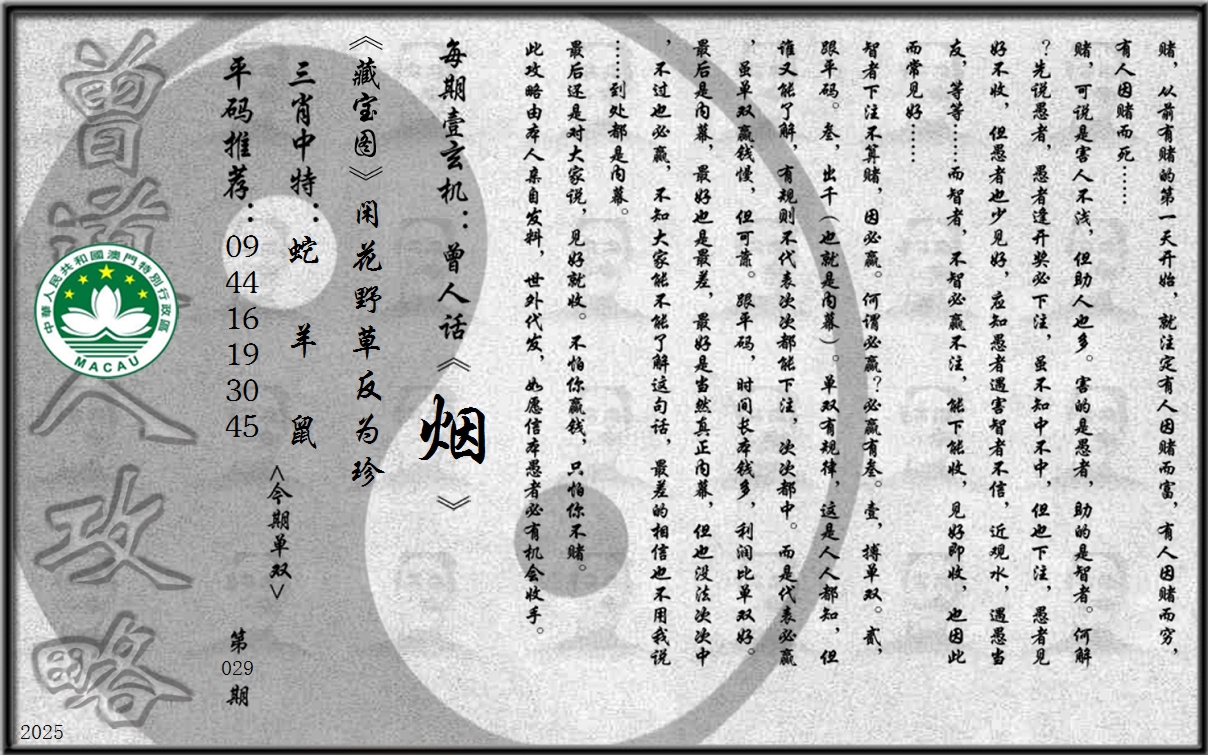 赌，从前有赌的第一天开始，就注定有人因赌而富，有人因赌而穷，
有人因赌而死……
赌，可说是害人不浅，但助人也多。害的是愚者，助的是智者。何解
？先说愚者，愚者逢开奖必下注，虽不知中不中，但也下注，愚者见
好不收，但愚者也少见好，应知愚者遇害智者不信，近观水，遇愚当
友，等等……而智者，不智必赢不注，能下能收，见好即收，也因此
而常见好……
智者下注不算赌，因必赢。何谓必赢？必赢有叁。壹，搏单双。贰，
跟平码。叁，出千（也就是内幕）。单双有规律，这是人人都知，但
谁又能了解，有规则不代表次次都能下注，次次都中。而是代表必赢
，虽单双赢钱慢，但可靠。跟平码，时间长本钱多，利润比单双好。
最后是内幕，最好也是最差，最好是当然真正内幕，但也没法次次中
，不过也必赢，不知大家能不能了解这句话，最差的相信也不用我说
……到处都是内幕。
最后还是对大家说，见好就收。不怕你赢钱，只怕你不赌。
此攻略由本人亲自发料，世外代发，如愿信本愚者必有机会收手。
每期壹玄机：曾人话《烟》
《藏宝图》闲花野草反为珍
三肖中特：蛇 羊 鼠
<今期单双>
平码推荐：09 44 16 19 30 45
第029期
曾道人攻略
中華人民共和國澳門特別行政區
MACAU
2025